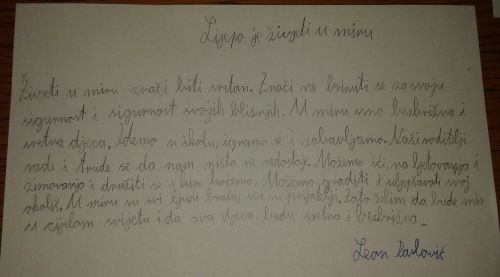 Lijepo je živjeti u miru
Živjeti u miru znači biti sretan. Znači ne brinuti se za svoju
sigurnost i sigurnost svojih bližnjih. U miru smo bezbrižna i
sretna djeca. Idemo u školu, igramo se i zabavljamo. Naši roditelji
rade i trude se da nam ništa ne nedostaje. Možemo ići na ljetovanja i
zimovanja i družiti se s kim hoćemo. Možemo graditi i uljepšavati svoj
okoliš. U miru su svi ljudi braća, svi su prijatelji. Zato želim da bude mir
u cijelom svijetu i da sva djeca budu sretna i bezbrižna.
Leon Pavlović